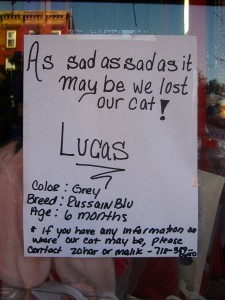 As sad as sad as it
may be we lost
our cat!
LUCAS
Color: Grey
Breed: Russain Blu
Age: 6 months
* if you have any information on
where our cat may be, please
contact zohar or malik - 718-